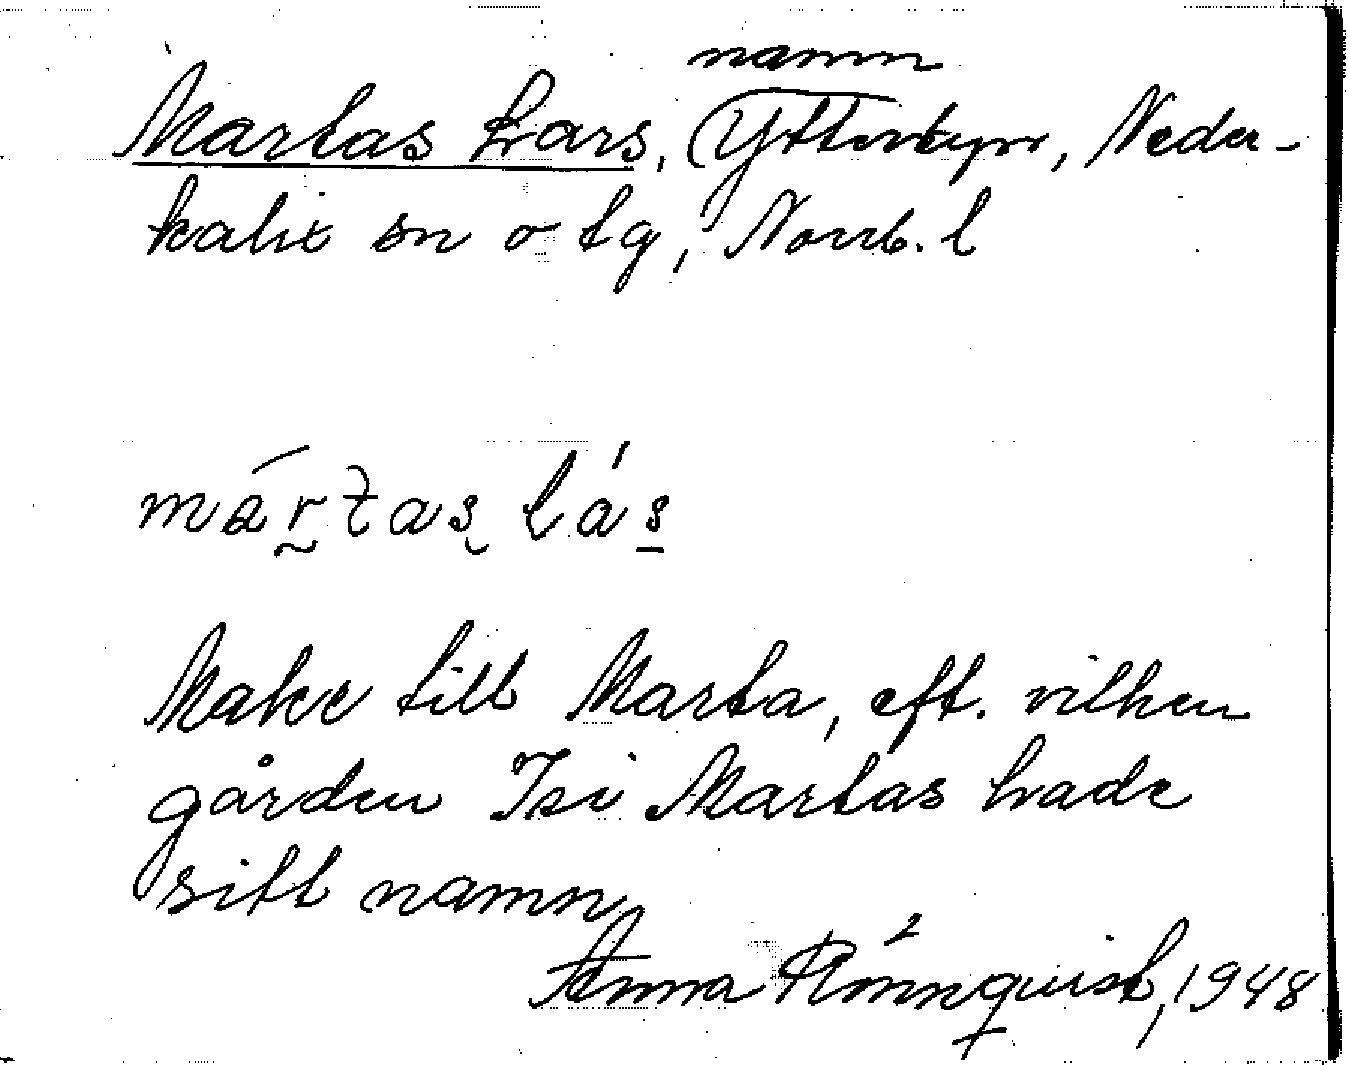 namn
Martas Lars, Ytterbyn, Neder-
kalix sn o tg, Norrb. l
Make till Marta, eft. vilken
gården Isi Martas hade
sitt namn
Anna Rönnquist, 1948